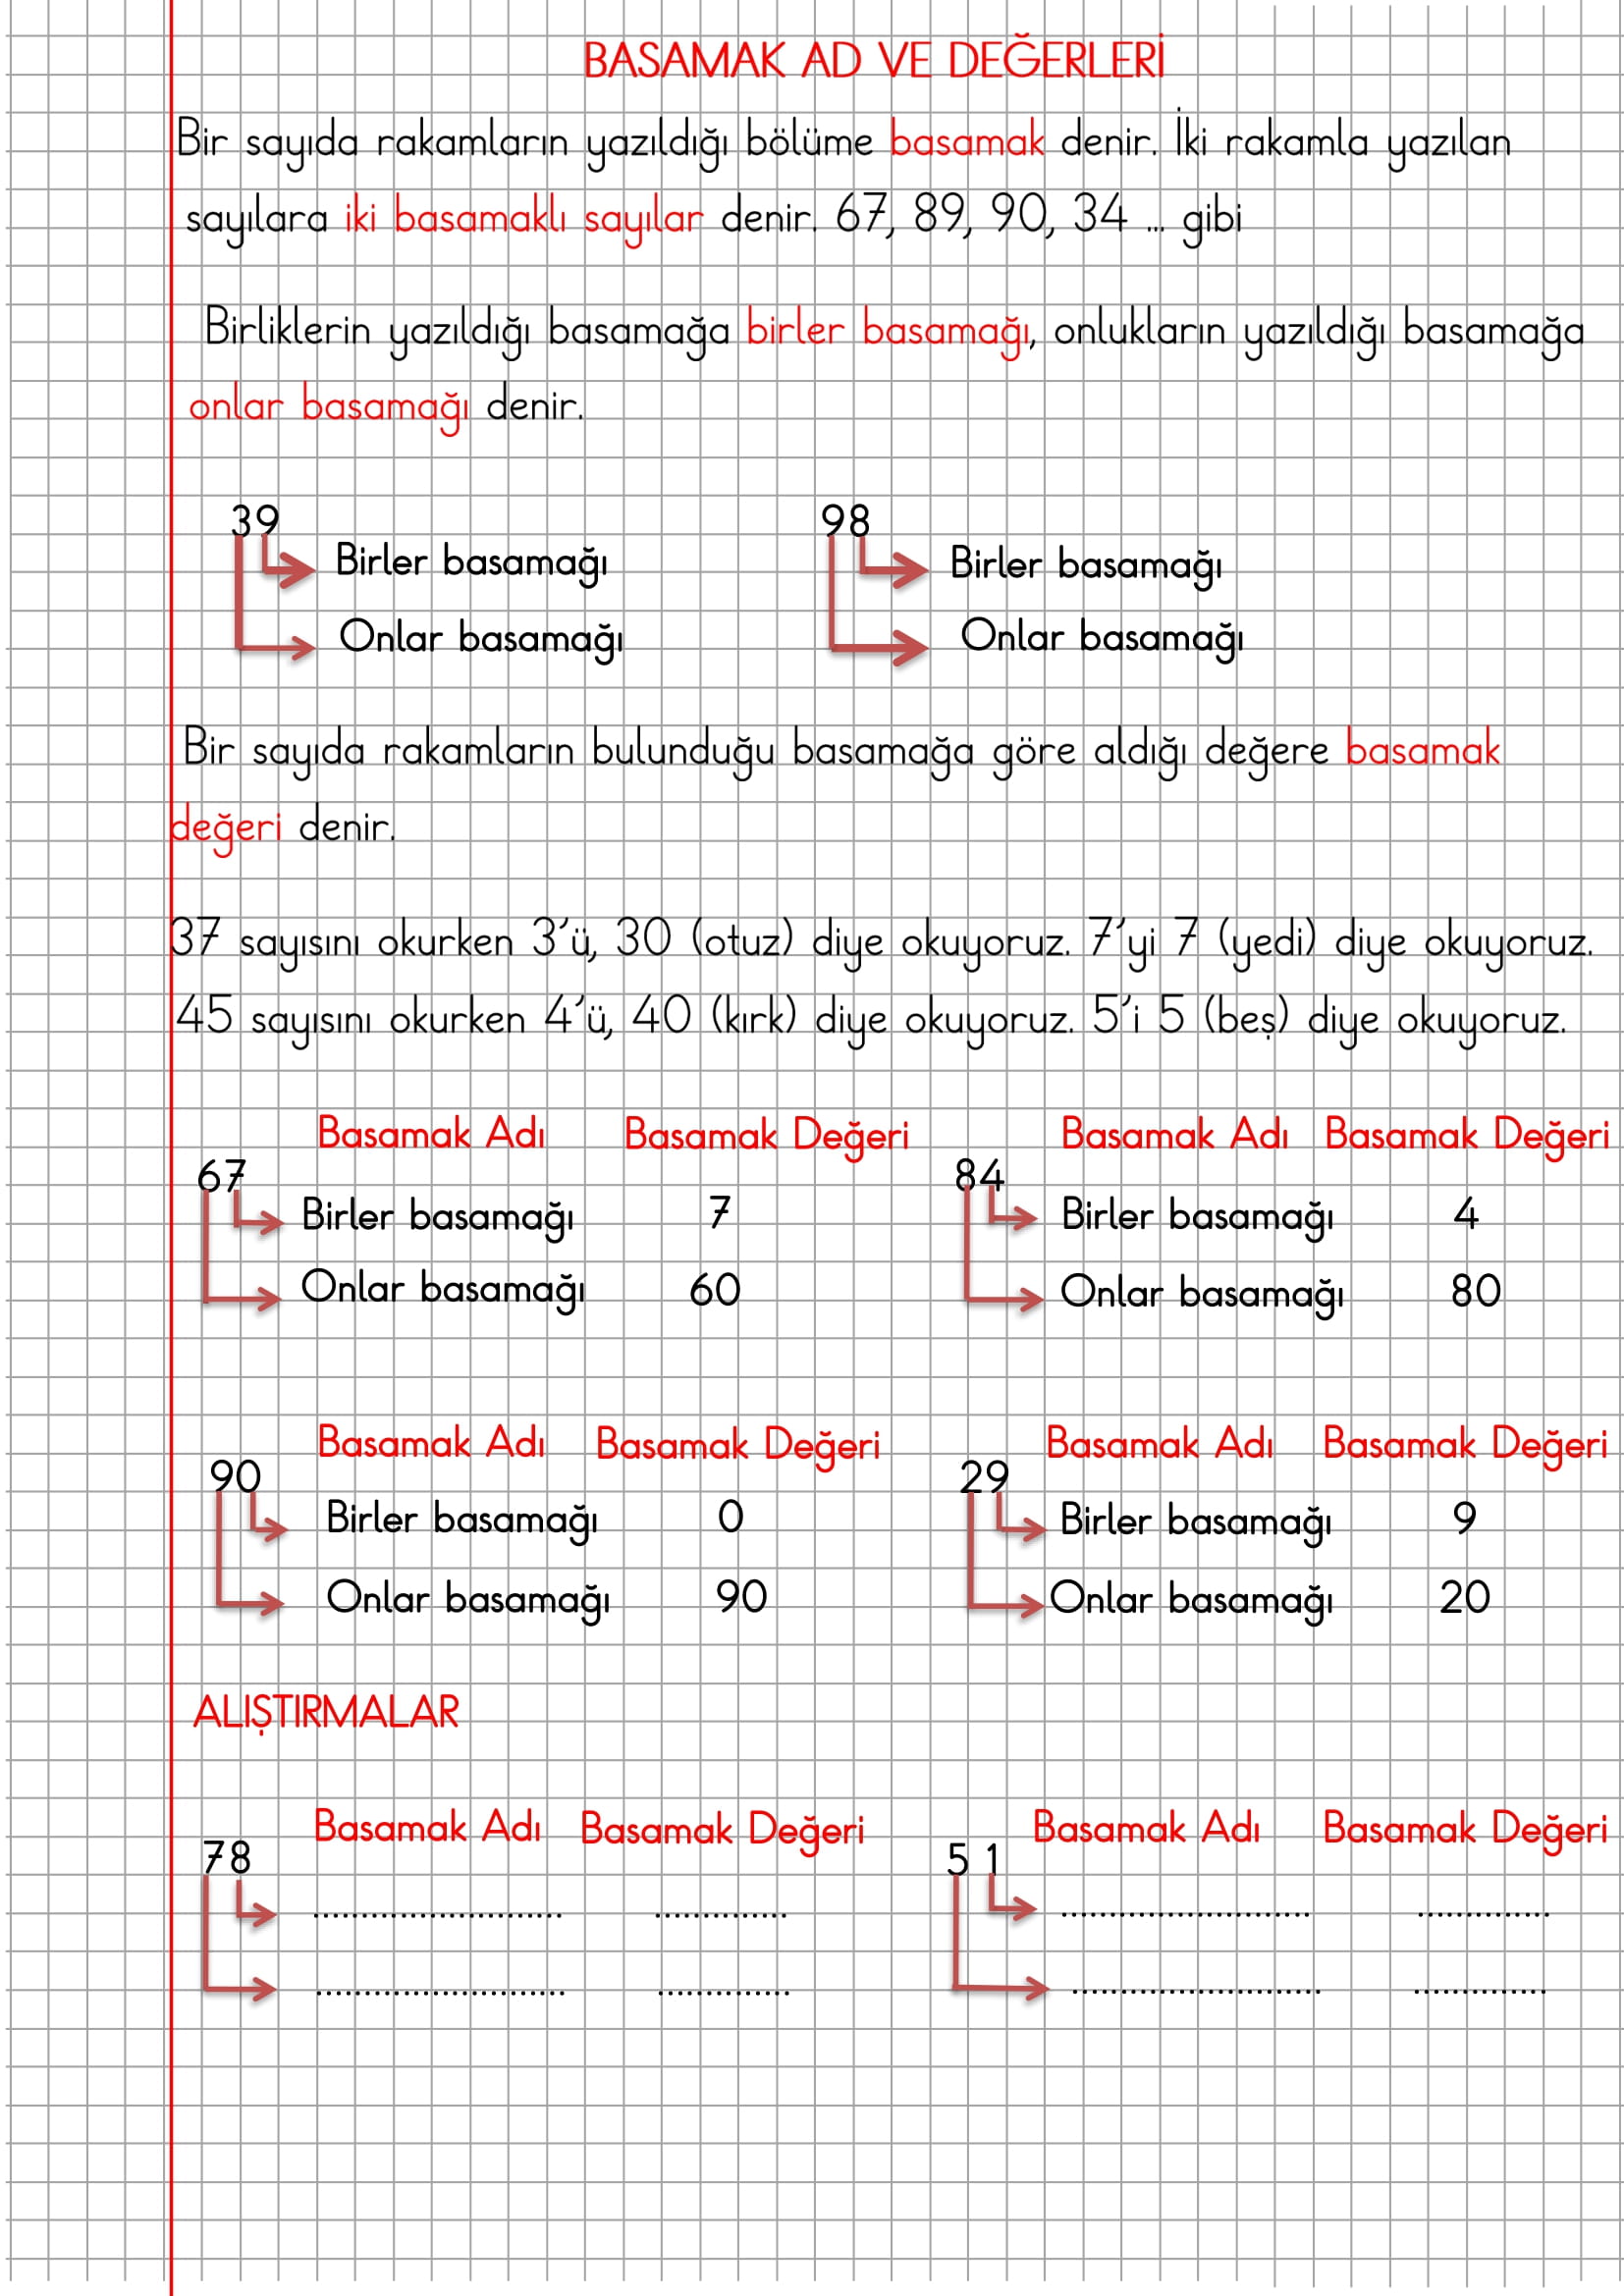 BASAMAK AD VE DEĞERLERİ
Bir sayıda rakamların yazıldığı bölüme basamak denir. İki rakamla yazılan
sayılara iki basamaklı sayılar denir. 67, 89, 90, 34 ... gibi
Birliklerin yazıldığı basamağa birler basamağı, onlukların yazıldığı basamağa
onlar basamağı denir.
39 98
Birler basamağı Birler basamağı
Onlar basamağı Onlar basamağı
Bir sayıda rakamların bulunduğu basamağa göre aldığı değere basamak
değeri denir.
37 sayısını okurken 3'ü, 30 (otuz) diye okuyoruz. 7'yi 7 (yedi) diye okuyoruz.
45 sayısını okurken 4'ü, 40 (kırk) diye okuyoruz. 5'i 5 (beş) diye okuyoruz.
Basamak Adı Basamak Değeri Basamak Adı Basamak Değeri
67 84
Birler basamağı 7 Birler basamağı 4
Onlar basamağı 60 Onlar basamağı 80
Basamak Adı Basamak Değeri Basamak Adı Basamak Değeri
90 29
Birler basamağı 0 Birler basamağı 9
Onlar basamağı 90 Onlar basamağı 20
ALIŞTIRMALAR
Basamak Adı Basamak Değeri Basamak Adı Basamak Değeri
78 5 1
.......................... .............. .......................... ..............
.......................... .............. .......................... ..............